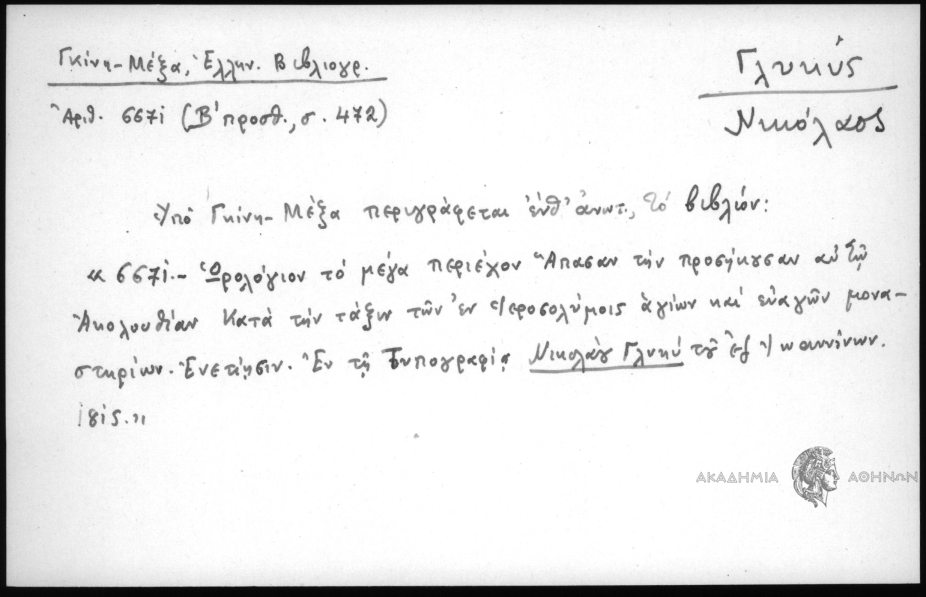 Γκίνη-Μέξα, Ἑλλην. Βιβλιογρ.
Γλυκύς
Ἀριθ. 667i (Β' προσθ., σ. 472)
Νικόλαος
Ὑπὸ Γκίνη-Μέξα περιγράφεται ἐνθ' ἀνωτ., τὸ βιβλίον:
« 667i.- Ὡρολόγιον τὸ μέγα περιέχον Ἅπασαν τὴν προσήκουσαν αὐτῷ
Ἀκολουθίαν Κατὰ τὴν τάξιν τῶν ἐν Ἱεροσολύμοις ἁγίων καὶ εὐαγῶν μονα-
στηρίων. Ἐνετίῃσιν. Ἐν τῇ Τυπογραφίᾳ Νικολάῳ Γλυκύ τοῦ ἐξ Ἰωαννίνων.
ΑΚΑΔΗΜΙΑ ΑΘΗΝΩΝ